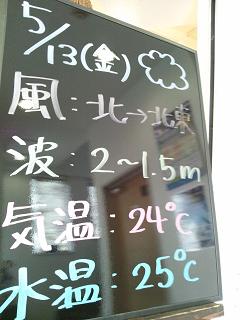 5/13(金)
風:北→北東
波:2~1.5m
気温:24℃
水温:25℃